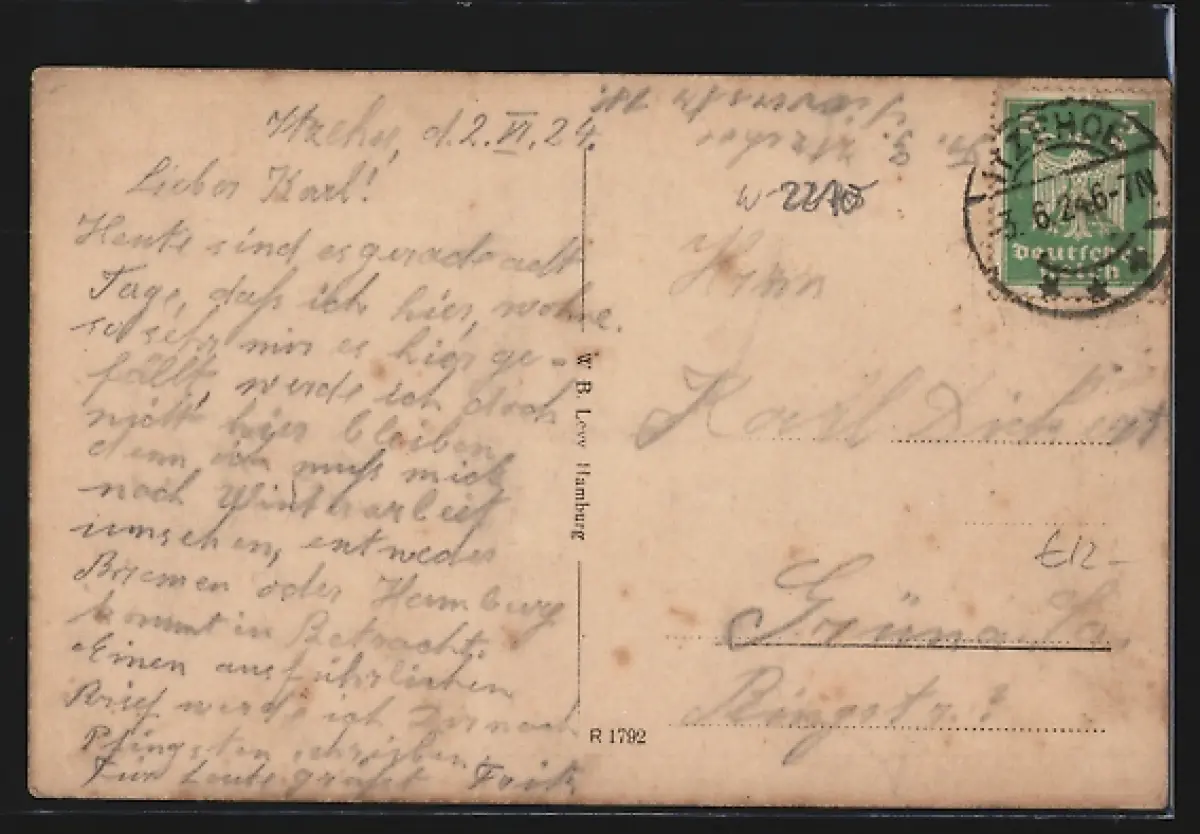 Itzehoe, d. 2. VI. 24.
Lieber Karl!
Heute sind es gerade acht
Tage, daß ich hier wohne.
so sehr mir es hier ge-
fällt, werde ich doch
nicht hier bleiben,
denn ich muß mich
nach Winterarbeit
umsehen, entweder
Bremen oder Hamburg
kommt in Betracht.
Einen ausführlichen
Brief werde ich Dir nach
Pfingsten schreiben.
Für heute grüßt Fritz
W. B. Levy Hamburg
R 1792
ITZEHOE
3. 6. 24. 6-7N
Deutsches
Reich
5 5
Herrn
Karl
Grüna
Ringstr.
£12-